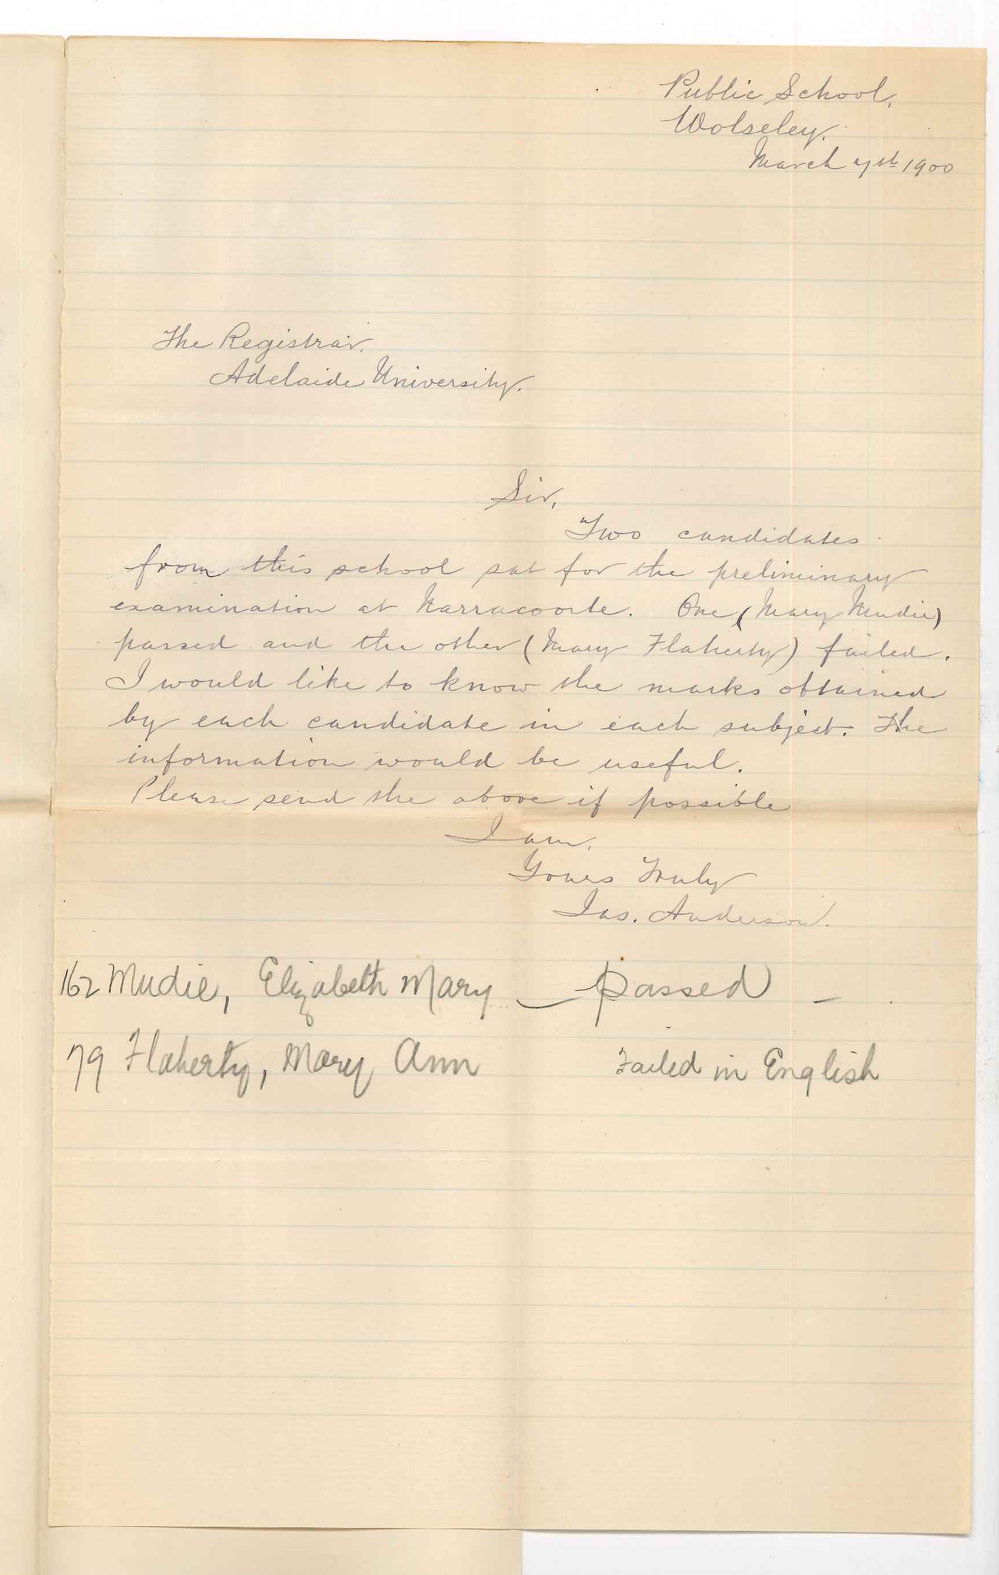 Public School,
Wolseley.
March 7th 1900
The Registrar.
Adelaide University.
Sir,
Two candidates
from this school sat for the preliminary
examination at Narracoorte. One (Mary Mudie)
passed and the other (Mary Flaherty) failed.
I would like to know the marks obtained
by each candidate in each subject. The
information would be useful.
Please send the above if possible
I am,
Yours Truly
Jas. Anderson.
162 Mudie, Elizabeth Mary — Passed —
79 Flaherty, Mary Ann Failed in English